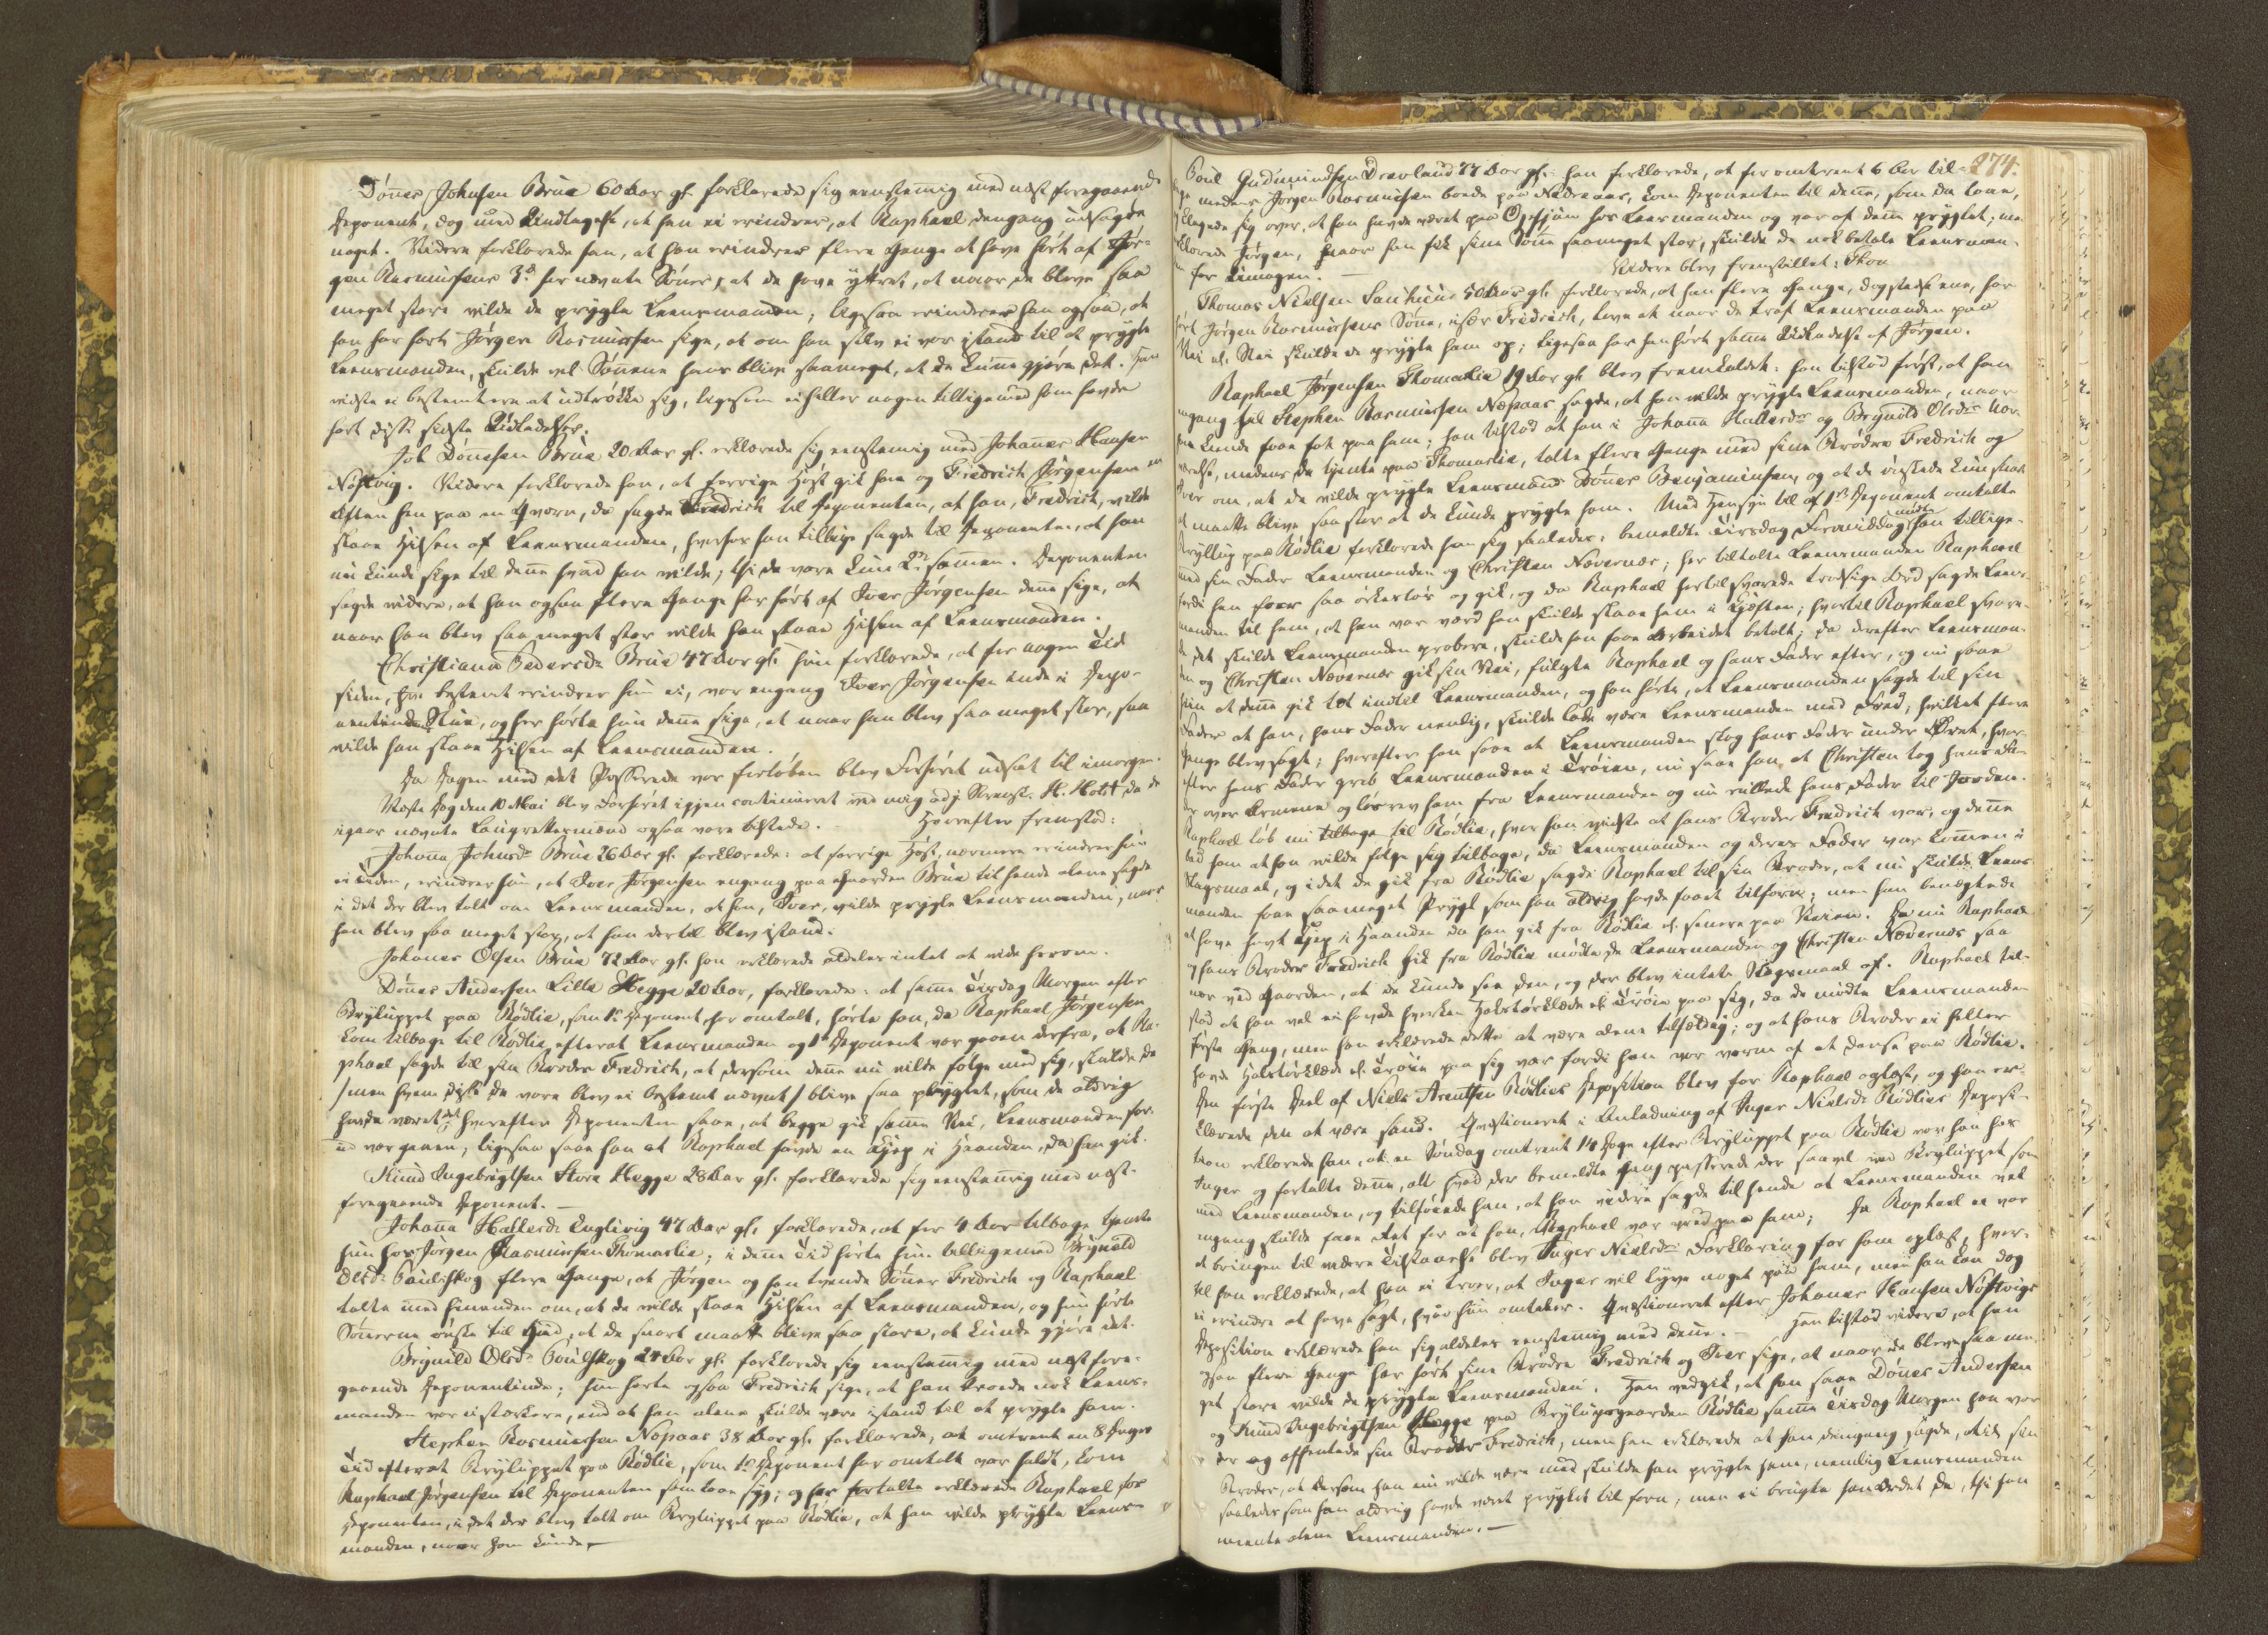 Dønes Johnsen Brue 60 Aar gl. forklarede sig eenstemig med næst foregaaende
Deponent, dog med Undtagelse, at han ei erindrer, at Raphael dengang udsagde
noget. Videre forklarede han, at han erindrer flere Gange at have hørt af Jør-
gen Rasmussens 3de her nævnte Søner, at de have yttret, at naar de bleve saa
meget store vilde de prygle Leensmanden; ligesaa erindrer han ogsaa, at
han har hørt Jørgen Rasmussen sige, at om han selv ei var istand til at prygle
Leensmanden, skulde vel Sønnene hans blive saameget, at de kunne gjøre det. Han
vidste ei bestemtere at udtrøkke sig, ligesom ei heller nogen tilligemed ham havde
hørt disse sidste Udladelser.
Job Dønesen Brue 20 Aar gl. erklærede sig eenstemig med Johannes Hansen
Nøstvig. Videre forklarede han, at forrige Høst gik han og Friedrich Jørgensen en
Aften hen paa en Qværn, da sagde Fredrich til Deponenten, at han, Fredrich, vilde
slaae Hilsen af Leensmanden, hvorfor han tillige sagde til Deponenten, at han
nu kunde sige til denne hvad han vilde; thi de vare kun 2de sammen. Deponenten
sagde videre, at han ogsaa flere Gange har hørt af Iver Jørgensen denne sige, at
naar han blev saa meget stor vilde han slaae Hilsen af Leensmanden.
Christiana Pedersdr. Brue 47 Aar gl. hun forklarede, at for nogen Tid
siden, hvor bestemt erindrer hun ei, var engang Iver Jørgensen inde i Depo-
nentindens Stue, og her hørte hun denne sige, at naar han blev saa meget stor, saa
vilde han slaae Hilsen af Leensmanden.
Da Dagen med det Passerede var forløben blev Forhøret udsat til imorgen.
Næste Dag den 10 Mai blev Forhøret igjen continueret ved mig adj. H. Holst da de
igaar nævnte Laugrettesmænd ogsaa vare tilstede. Hvorefter fremstod:
Johanna Johnsdr. Brue 26 Aar gl. forklarede: at forrige Høst, nærmere erindrer hun
ei Tiden, erindrer hun, at Iver Jørgensen engang paa Gaarden Brue til hende alene sagde
i det der blev talt om Leensmanden, at han, Iver, vilde prygle Leensmanden, naar
han blev saa meget stor, at han dertil blev istand.
Johannes Olsen Brue 72 Aar gl. han erklærede aldeles intet at vide herom.
Dønes Andersen Lille Hegge 20 Aar, forklarede: at samme Tirsdag Morgen efter
Brylluppet paa Rødlie, som 1ste Deponent har omtalt, hørte han, da Raphael Jørgensen
kom tilbage til Rødlie, efterat Leensmanden og 1ste Deponent var gaaen derfra, at Ra-
phael sagde til sin Broder Fredrich, at dersom denne nu vilde følge med sig, skulde de
/men hvem disse de vare blev ei bestemt nævnt/ blive saa pryglet, som de aldrig
havde været det, hvorefter Deponenten saae, at begge gik samme Vei, Leensmanden for-
ud var gaaen, ligesaa saae han at Raphael havde en Kjep i Haanden, da han gik.
Knud Ingebrigtsen Store Hegge 28 Aar gl. forklarede sig eenstemig med næst-
foregaaende Deponent.
Johanna Hallesdr. Englivig 47 Aar gl. forklarede, at for 4 Aar tilbage tjente
hun hos Jørgen Rasmussen Thomaslie; i denne Tid hørte hun tilligemed Brynild
Olsdr. Poulshog flere Gange, at Jørgen og han tvende Sønner Fredrich og Raphael
talte med hinanden om, at de vilde slaae Hilsen af Leensmanden, og hun hørte
Sønerne ønske til Gud, at de snart maatte blive saa store, at kunde gjøre det.
Brynild Olsdr. Poulshog 24 Aar gl. forklarede sig eenstemig med næst fore-
gaaende Deponentinde; hun hørte ogsaa Fredrich sige, at han troede nok Leens-
manden var ei stærkere, end at han alene skulde være istand til at prygle ham.
Stephen Rasmussen Næpaas 38 Aar gl. forklarede, at omtrent en 8 Dages
Tid efterat Brylluppet paa Rødlie, som 1ste Deponent har omtalt var holdt, kom
Raphael Jørgensen til Deponenten som laae syg; og her fortalte erklærede Raphael for
Deponenten, i det der blev talt om Brylluppet paa Rødlie, at han vilde prygle Leens-
manden, naar ham kunde.
274.
Poul Gudmundsen Dravland 77 Aar gl. han forklarede, at for omtrent 6 Aar til-
medens Jørgen Rasmussen boede paa Nedreaas, kom Deponenten til denne, som da laae,
klagede sig over, at han havde været paa Opsjøn hos Leensmanden og var af denne pryglet; 
Jørgen, hvor han fik sine Sønne saameget stor, skulde de nok betale Leensman-
for Umagen. Videre blev fremstillet: Thom
Thomas Nielsen Sanhuus 50 Aar gl. forklarede, at han flere Gange, dog stedse ene, har
hørt Jørgen Rasmussens Sønne, især Fredrich, love at naar de traf Leensmanden paa
Vei el. Stie skulde de prygle ham op; ligesaa har han hørt samme Udladelse af Jørgen.
Raphael Jørgensen Thomaslie 19 Aar gl. blev fremkaldt: han tilstod først, at han
engang hos Stephen Rasmussen Næpaas sagde, at han vilde prygle Leensmanden, naar
han kunde faae fat paa ham; han tilstod at han i Johanna Hallesdr. og Brynild Olsdr. Nær-
værelse, medens de tjente paa Thomaslie, talte flere Gange med sine Brødre Fredrich og
Iver om, at de vilde prygle Leensmand Dønes Benjaminsen, og at de ønskede kun snart
at maatte blive saa stor at de kunde prygle ham. Med Hensyn til af 1ste Deponent omtalte
Bryllup paa Rødlie forklarede han sig saaledes: bemeldte Tirsdag Formiddag mødte han tillige-
med sin Fader Leensmanden og Christen Nævernæs; her tiltalte Leensmanden Raphael
fordi han foer saa ørkesløs og gik, og da Raphael hertil svarede trodsige Ord sagde Leens-
manden til ham, at han var værd han skulde slaae ham i Kjæften; hvortil Raphael svare-
de det skulde Leensmanden probere, skulde han faae Arbeidet betalt; da derefter Leensman-
den og Christen Nævernæs gik sin Vei, fulgte Raphael og hans Fader efter, og nu saae
han at denne gik tæt indtil Leensmanden, og han hørte, at Leensmanden sagde til sin
Fader at han, hans Fader nemlig, skulde lade være Leensmanden med Fred, hvilket flere
Gange blev sagt; hvorefter han saae at Leensmanden slog hans Fader under Øret, hvor-
efter hans Fader greb Leensmanden i Trøien, nu saae han, at Christen tog hans Fa-
der over Armene og løsrev ham fra Leensmanden og nu rullede hans Fader til Jorden.
Raphael løb nu tilbage til Rødlie, hvor han vidste at hans Broder Fredrich var, og denne
bad han at han vilde følge sig tilbage, da Leensmanden og deres Fader var kommen i
Slagsmaal, og idet de gik fra Rødlie sagde Raphael til sin Broder, at nu skulde Leens-
manden faae saameget Prygl som han aldrig havde faaet tilforn; men han benægtede
at have havt Kjep i Haanden da han gik fra Rødlie el. senere paa Veien. Da nu Raphael
og hans Broder Fredrich gik fra Rødlie mødte de Leensmanden og Christen Nævernæs saa
nær ved Gaarden, at de kunde see den, og der blev intet Slagsmaal af. Raphael til-
stod at han vel ei havde hverken Halstørklæde el. Trøie paa sig, da de mødte Leensmanden
første Gang, men han erklærede dette at være alene tilfældig; og at hans Broder ei heller
havde Halstørklæde el. Trøie paa sig var fordi han var varm af at danse paa Rødlie.
Den første Deel af Niels Arentsen Rødlies Deposition blev for Raphael oplæst, og han er-
klærede den at være sand. Qvæstioneret i Anledning af Inger Nielsdr. Rødlies Deposi-
tion erklærede han, at en Søndag omtrent 14 Dage efter Brylluppet paa Rødlie var han hos
Inger og fortalte denne, alt hvad der bemeldte Gang passerede der saavel ved Brylluppet som
med Leensmanden, og tilføiede han, at han videre sagde til hende at Leensmanden vel
engang skulde faae det for at han, Raphael var vred paa ham; Da Raphael ei var
at bringen til videre Tilstaaelse blev Inger Nielsdrs Forklaring for ham oplæst, hver-
til han erklærede, at han ei troer, at Inger vil lyve noget paa ham, men han kan dog
ei erindre at have sagt, hvad hun omtaler. Qvæstioneret efter Johannes Hansen Nøstvigs
Deposition erklærede han sig aldeles eenstemig med denne. Han tilstod videre, at han
ogsaa flere Gange har hørt sine Brødre Fredrich og Iver sige, at naar de bleve saa me-
get store vilde de prygle Leensmanden. Han vedgik, at han saae Dønes Andersen
og Knud Ingebrigtsen Hegge paa Bryllupsgaarden Rødlie samme Tirsdag Morgen han var
der og affentede sin Broder Fredrich, men han erklærede at han dengang sagde, til sin
Broder, at dersom han nu vilde være med skulde han prygle ham, nemlig Leensmanden
saaledes som han aldrig havde været pryglet til forn, men ei brugte han Ordet De, thi han
meente alene Leensmanden.